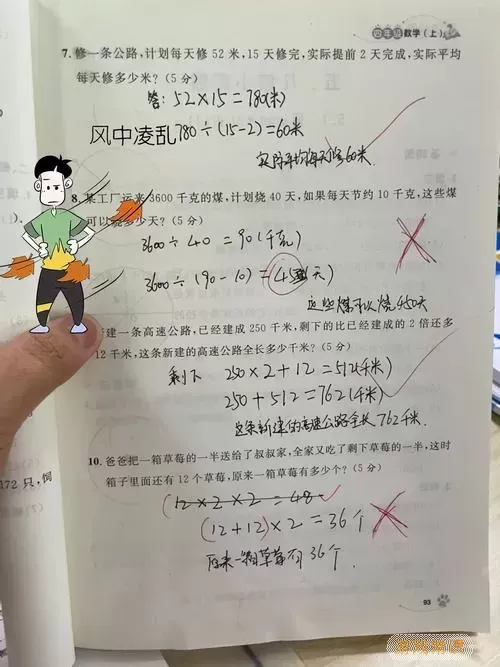 四年级数学(上)
7.修一条公路,计划每天修 52 米,15 天修完,实际提前 2 天完成,实际平均
每天修多少米?(5 分)
答: 52×15=780(米)
风中凌乱780÷(15-2)=60米
实际平均每天修60米
8.某工厂运来3600千克的煤,计划烧 40 天,如果每天节约 10 千克,这些煤
可以烧多少天?(5 分)
3600÷40=90(千克)
3600÷(90-10)=45(天)
这些煤可以烧450天
新建一条高速公路,已经建成 250 千米,剩下的比已经建成的 2 倍还多
12 千米,这条新建的高速公路全长多少千米?(5 分)
剩下 250×2+12=512(千米)
250+512=762(千米)
这条新建的高速公路全长762千米.
10.爸爸把一箱草莓的一半送给了叔叔家,全家又吃了剩下草莓的一半,这时
172 只,饲
箱子里面还有 12 个草莓,原来一箱草莓有多少个?(5 分)
(12×2×2=48
(12+12)×2=36个
原来一箱草莓有36个.
93